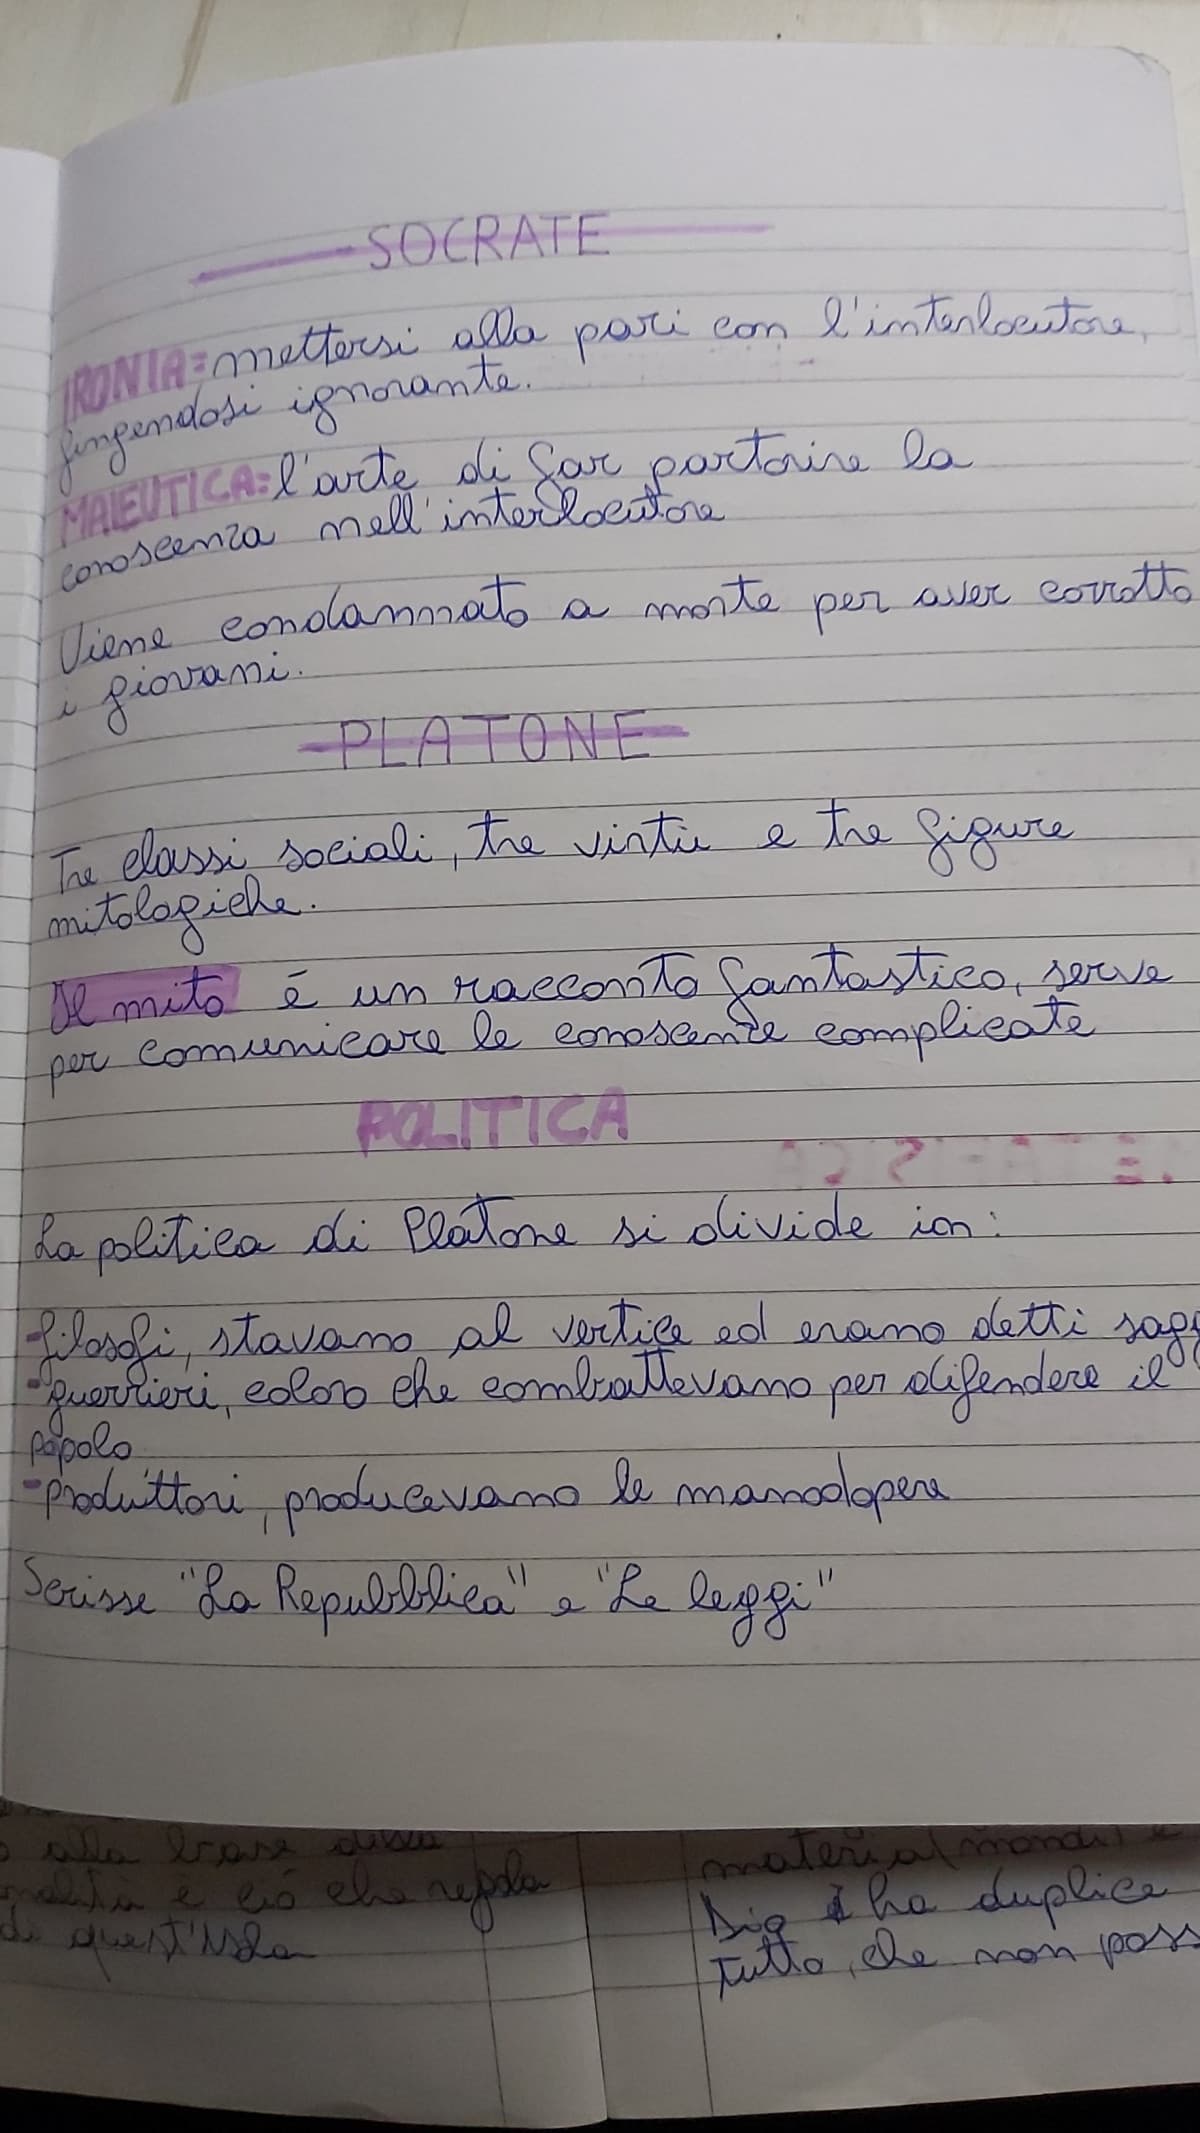 SOCRATE
IRONIA= mettersi alla pari con l'interlocutore,
fingendosi ignorante.
MAIEUTICA= l'arte di far partorire la
conoscenza nell'interlocutore
Viene condannato a morte per aver corrotto
i giovani.
PLATONE
Tre classi sociali, tre virtù e tre figure
mitologiche.
Il mito é un racconto fantastico, serve
per comunicare le conoscenze complicate
POLITICA
La politica di Platone si divide in:
-filosofi, stavano al vertice ed erano detti sagg
-guerrieri, coloro che combattevano per difendere il
popolo
-produttori, producevano le manodopere
Scrisse "La Repubblica" e "Le leggi"
alla base della
è ciò che regola
di quest'isola
material mondi e
Dio ha duplice
tutto, che non poss